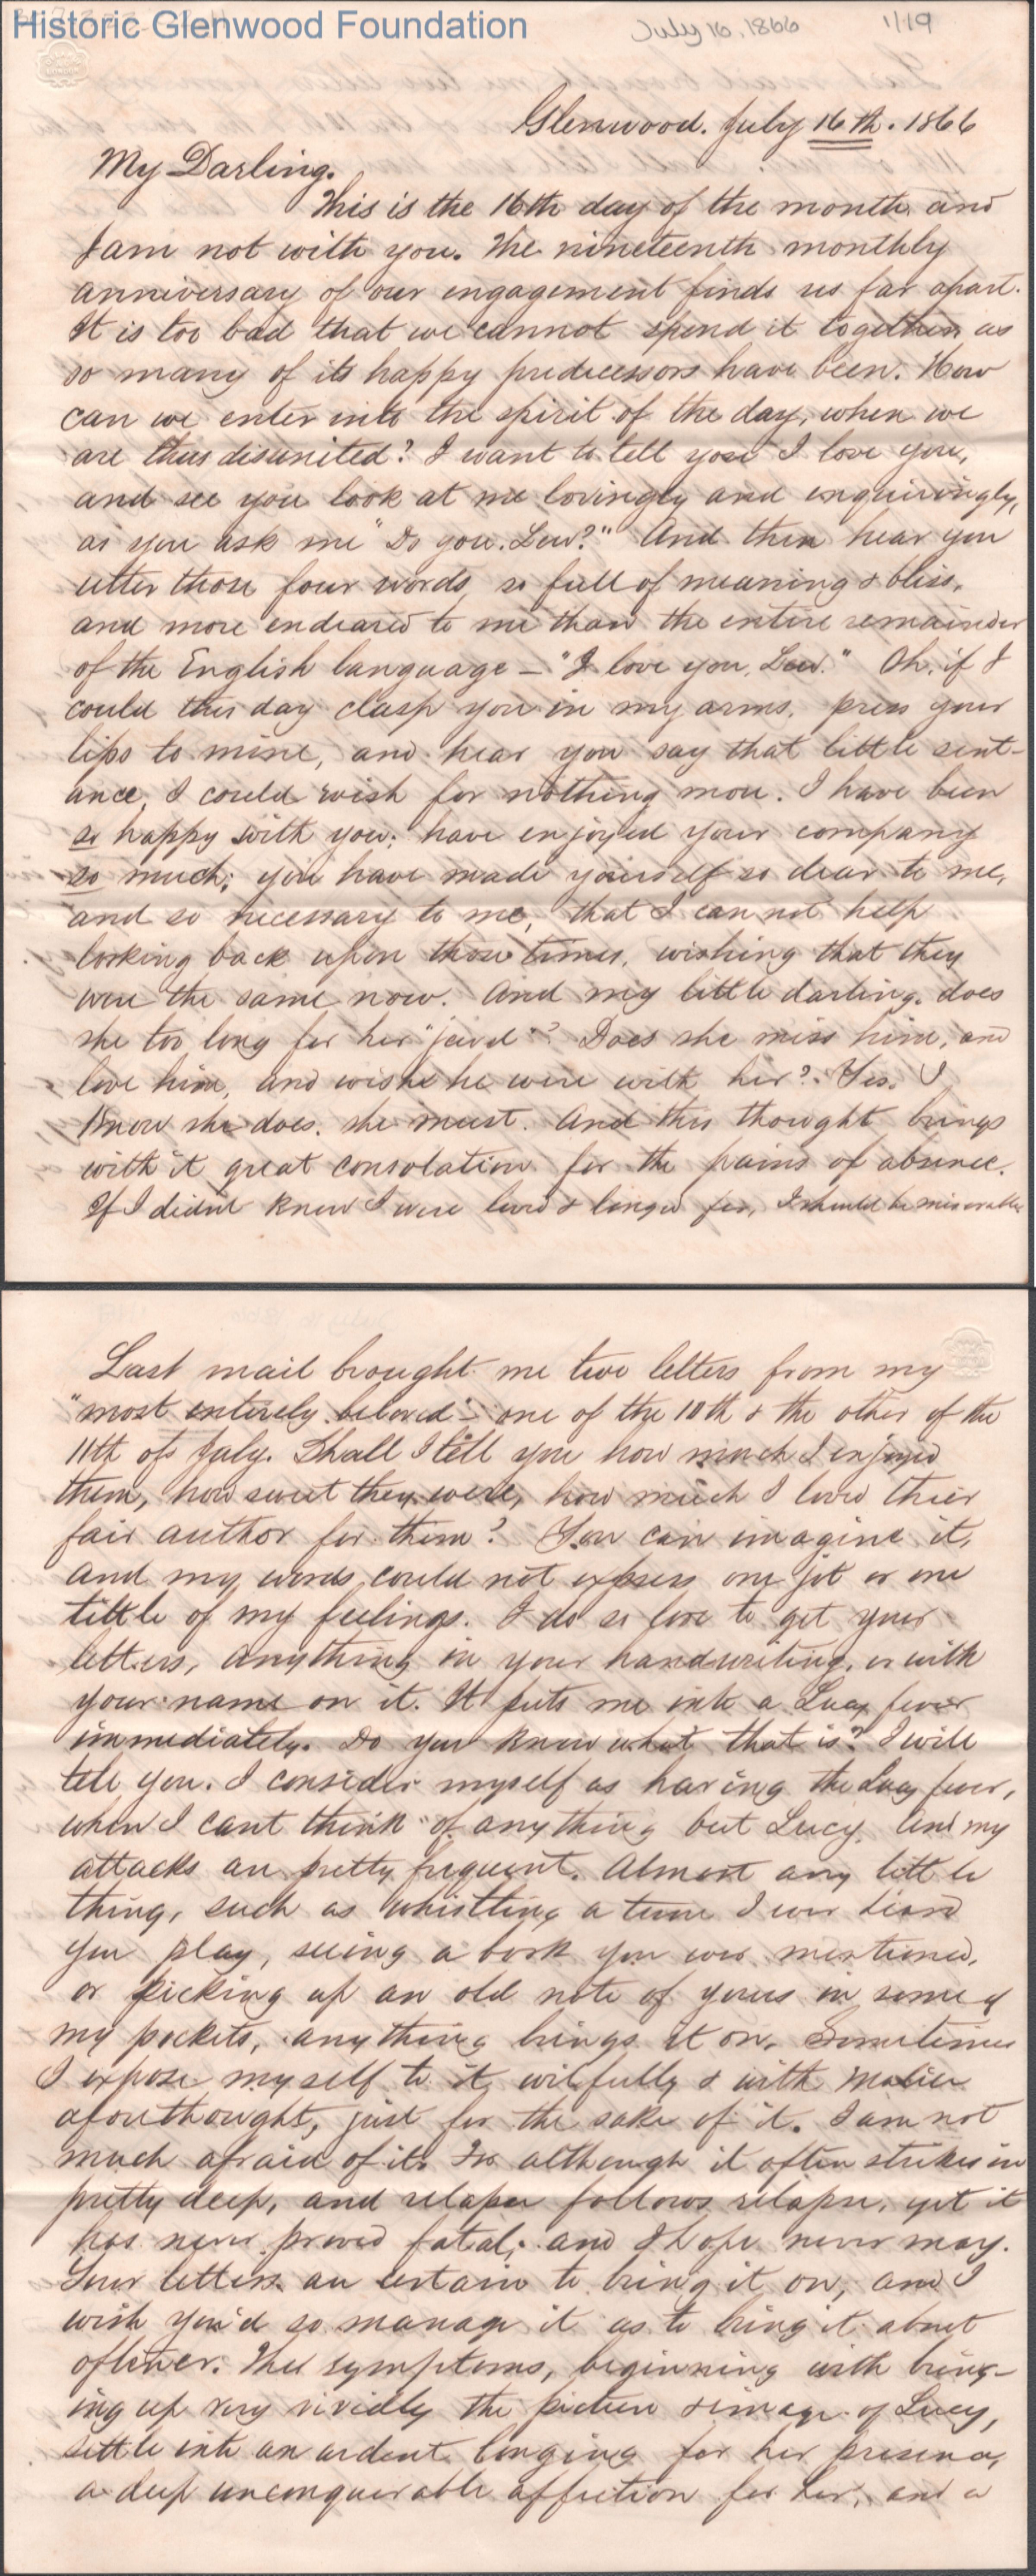 Historic Glenwood Foundation
July 16, 1866 1/19
Glenwood. July 16th. 1866
My Darling.
This is the 16th day of the month and
I am not with you. The nineteenth monthly
anniversary of our engagement finds us far apart.
It is too bad that we cannot spend it together, as
so many of its happy predecessors have been. How
can we enter into the spirit of the day, when we
are thus disunited? I want to tell you I love you,
and see you look at me lovingly and enquiringly,
as you ask me "Do you, Lew?" And then hear you
utter those four words, so full of meaning & bliss,
and more endeared to me than the entire remainder
of the English language - "I love you, Lew." Oh, if I
could this day clasp you in my arms, press your
lips to mine, and hear you say that little sent-
ance, I could wish for nothing more. I have been
so happy with you; have enjoyed your company
so much; you have made yourself so dear to me,
and so necessary to me, that I can not help
looking back upon those times, wishing that they
were the same now. And my little darling, does
she too long for her "jewel"? Does she miss him, and
love him, and wish he were with her? Yes, I
know she does, she must. And this thought brings
with it great consolation for the pains of absence.
If I didn't know I were loved & longed for, I should be miserable
Last mail brought me two letters from my
"most entirely beloved" - one of the 10th & the other of the
11th of July. Shall I tell you how much I enjoyed
them, how sweet they were, how much I loved their
fair author for them? You can imagine it,
and my words could not express one jot or one
tittle of my feelings. I do so love to get your
letters, anything in your handwriting, or with
your name on it. It puts me into a Lucy fever
immediately. Do you know what that is? I will
tell you. I consider myself as having the Lucy fever,
when I cant think of anything but Lucy. And my
attacks are pretty frequent. Almost any little
thing, such as whistling a tune I ever heard
you play, seeing a book you ever mentioned,
or picking up an old note of yours in some of
my pockets, anything brings it on. Sometimes
I expose myself to it wilfully & with malice
aforethought, just for the sake of it. I am not
much afraid of it. For although it often strikes in
pretty deep, and relapse follows relapse, yet it
has never proved fatal; and I hope never may.
Your letters are certain to bring it on, and I
wish you'd so manage it as to bring it about
oftener. The symptoms, beginning with bring-
ing up very vividly the picture & image of Lucy,
settle into an ardent longing for her presence,
a deep unconquerable affection for her, and a